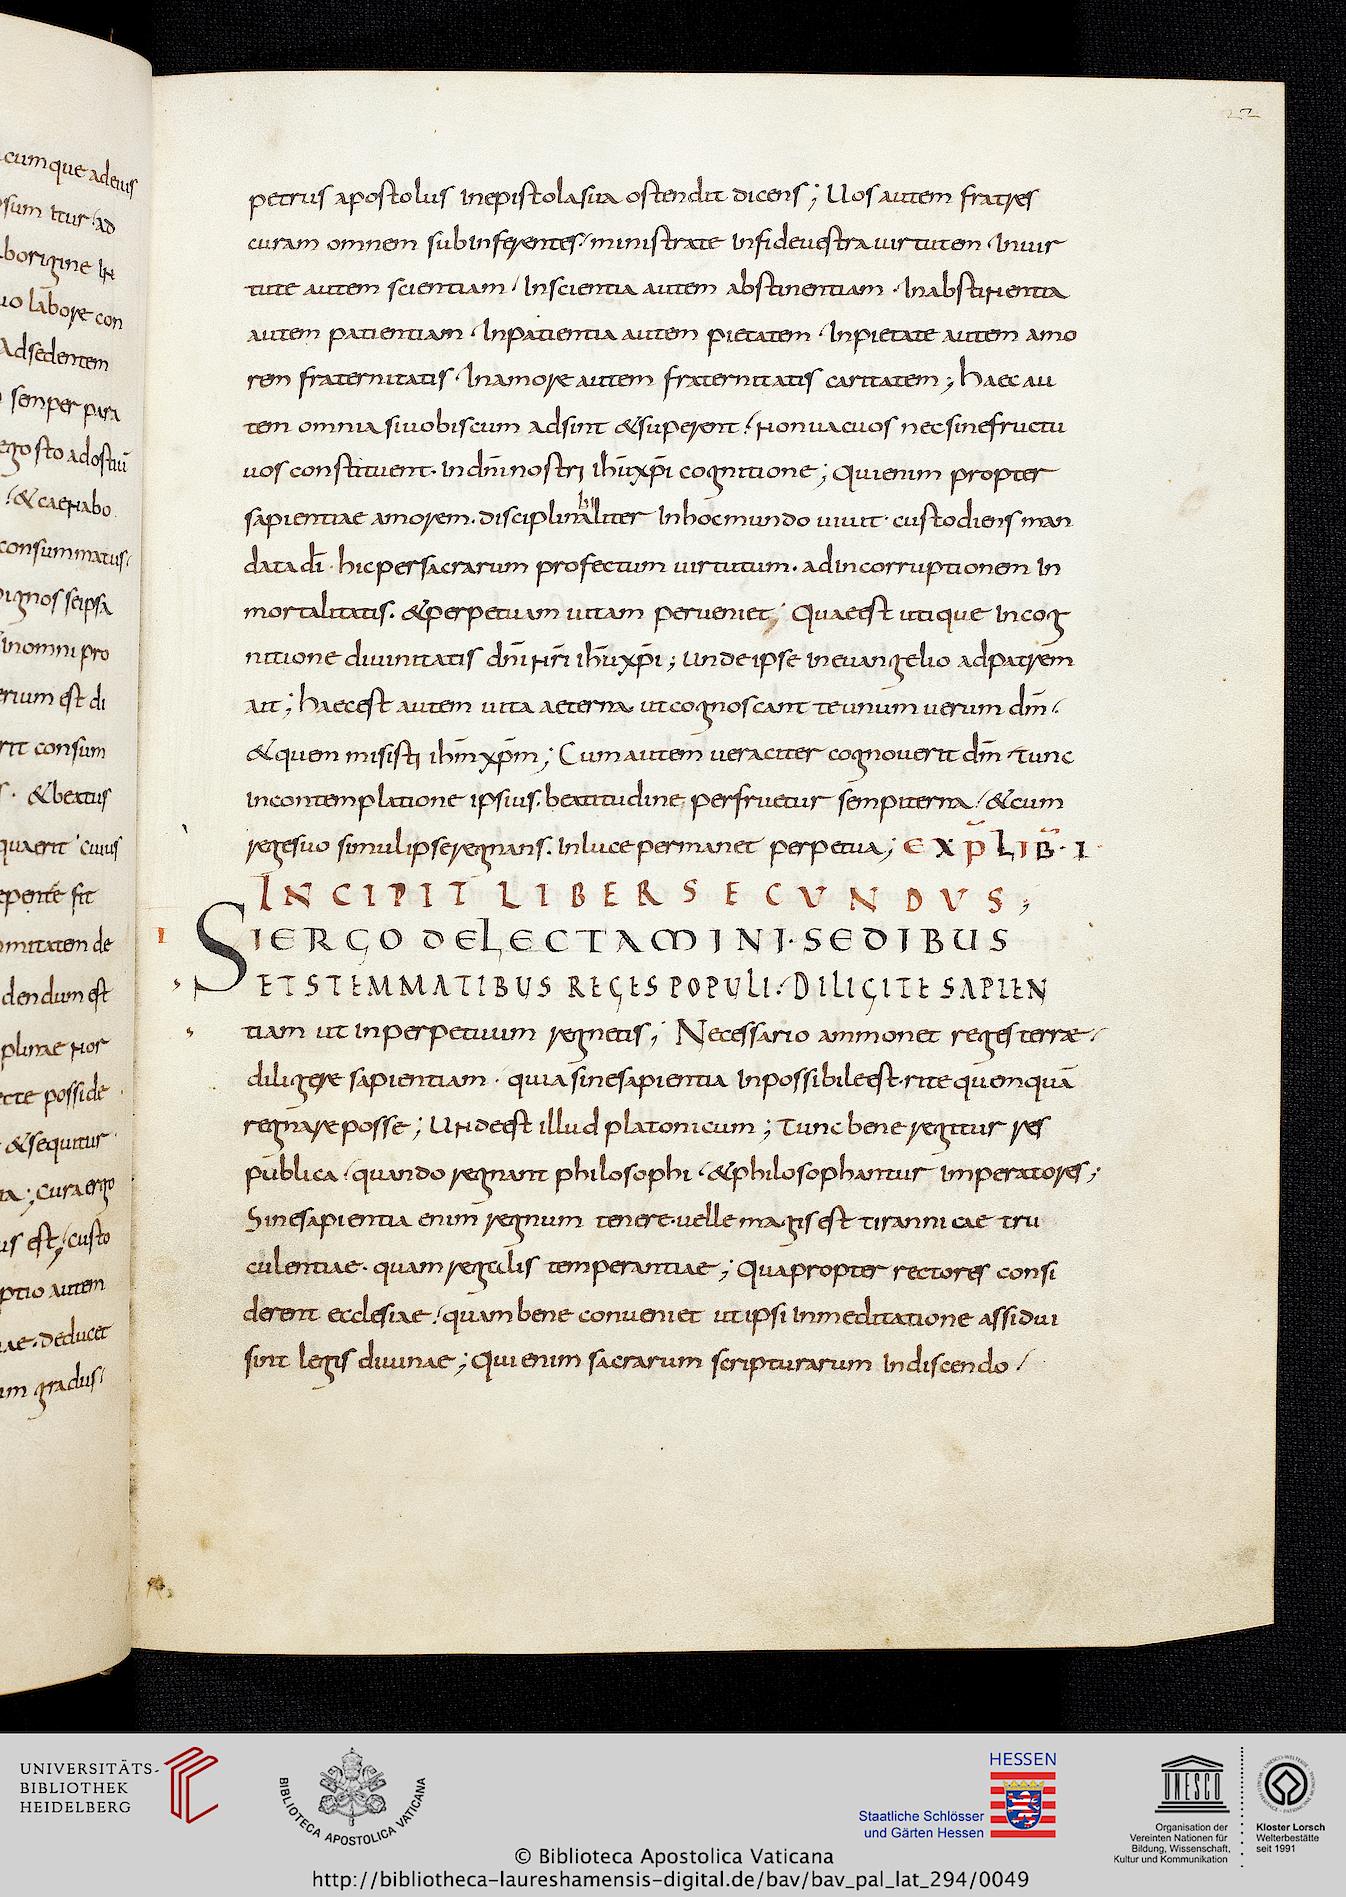 cumque adeius
sum itur ad
borigine in
uo labore con
Adsedentem
semper para
ego sto adostiū
& caenabo
consummatus
dignos seipsa
inomni pro
erium est di
rit consum
& beatus
quaerit cuius
epente sit
mitatem de
dendum est
plinae nor
ecte posside
& sequitur
ta; Cura ergo
us est; custo
ptio autem
ae. deducet
um gradus
22
petrus apostolus inepistolasua ostendit dicens; Uos autem fratres
curam omnem subinferentes ministrate infideuestrauirtutem Inuir
tute autem scientiam Inscientia autem abstinentiam Inabstinentia
autem patientiam Inpatientia autem pietatem Inpietate autem amo
rem fraternitatis Inamore autem fraternitatis caritatem; haec au
tem omnia siuobiscum adsint &superent nonuacuos necsinefructu
uos constituent. indn̄i nostri ihūxp̄i cognitione; Quienim propter
bi
sapientiae amorem. disciplinaliter inhocmundo uiuit custodiens man
data dī. hic persacrarum profectum uirtutum. adincorruptionem in
mortalitatis. &perpetuam uitam perueniet; Quaeest utique incog
nitione diuinitatis dn̄i nr̄i ihūxp̄i; unde ipse ineuangelio adpatrem
ait; haecest autem uita aeterna ut cognoscant teunum uerum dm̄
&quem misisti ihm̄xp̄m; Cum autem ueraciter cognouerit dm̄ tunc
incontemplatione ipsius. beatitudine perfruetur sempiterna &cum
regesuo simulipseregnans. inluce permanet perpetua; EXP̄ LIB̄ · I
INCIPIT LIBER SECUNDUS;
I
SI ERGO DELECTAMINI · SEDIBUS
ET STEMMATIBUS REGES POPULI. DILIGITE SAPIEN
tiam ut inperpetuum regnetis; Necessario ammonet reges terrae
diligere sapientiam quia sinesapientia inpossibileest. rite quemquā
regnare posse; Undeest illud platonicum; Tunc bene regitur res
publica quando regnant philosophi &philosophantur imperatores;
Sinesapientia enim regnum tenere uelle magis est tirannicae tru
culentiae. quam regalis temperantiae; Quapropter rectores consi
derent ecclesiae quam bene conueniet ut ipsi inmeditatione assidui
sint legis diuinae; Qui enim sacrarum scripturarum indiscendo
UNIVERSITÄTS-
BIBLIOTHEK
HEIDELBERG
BIBLIOTECA APOSTOLICA VATICANA
HESSEN
Staatliche Schlösser
und Gärten Hessen
UNESCO
Organisation der
Vereinten Nationen für
Bildung, Wissenschaft,
Kultur und Kommunikation
Kloster Lorsch
Welterbestätte
seit 1991
© Biblioteca Apostolica Vaticana
http://bibliotheca-laureshamensis-digital.de/bav/bav_pal_lat_294/0049